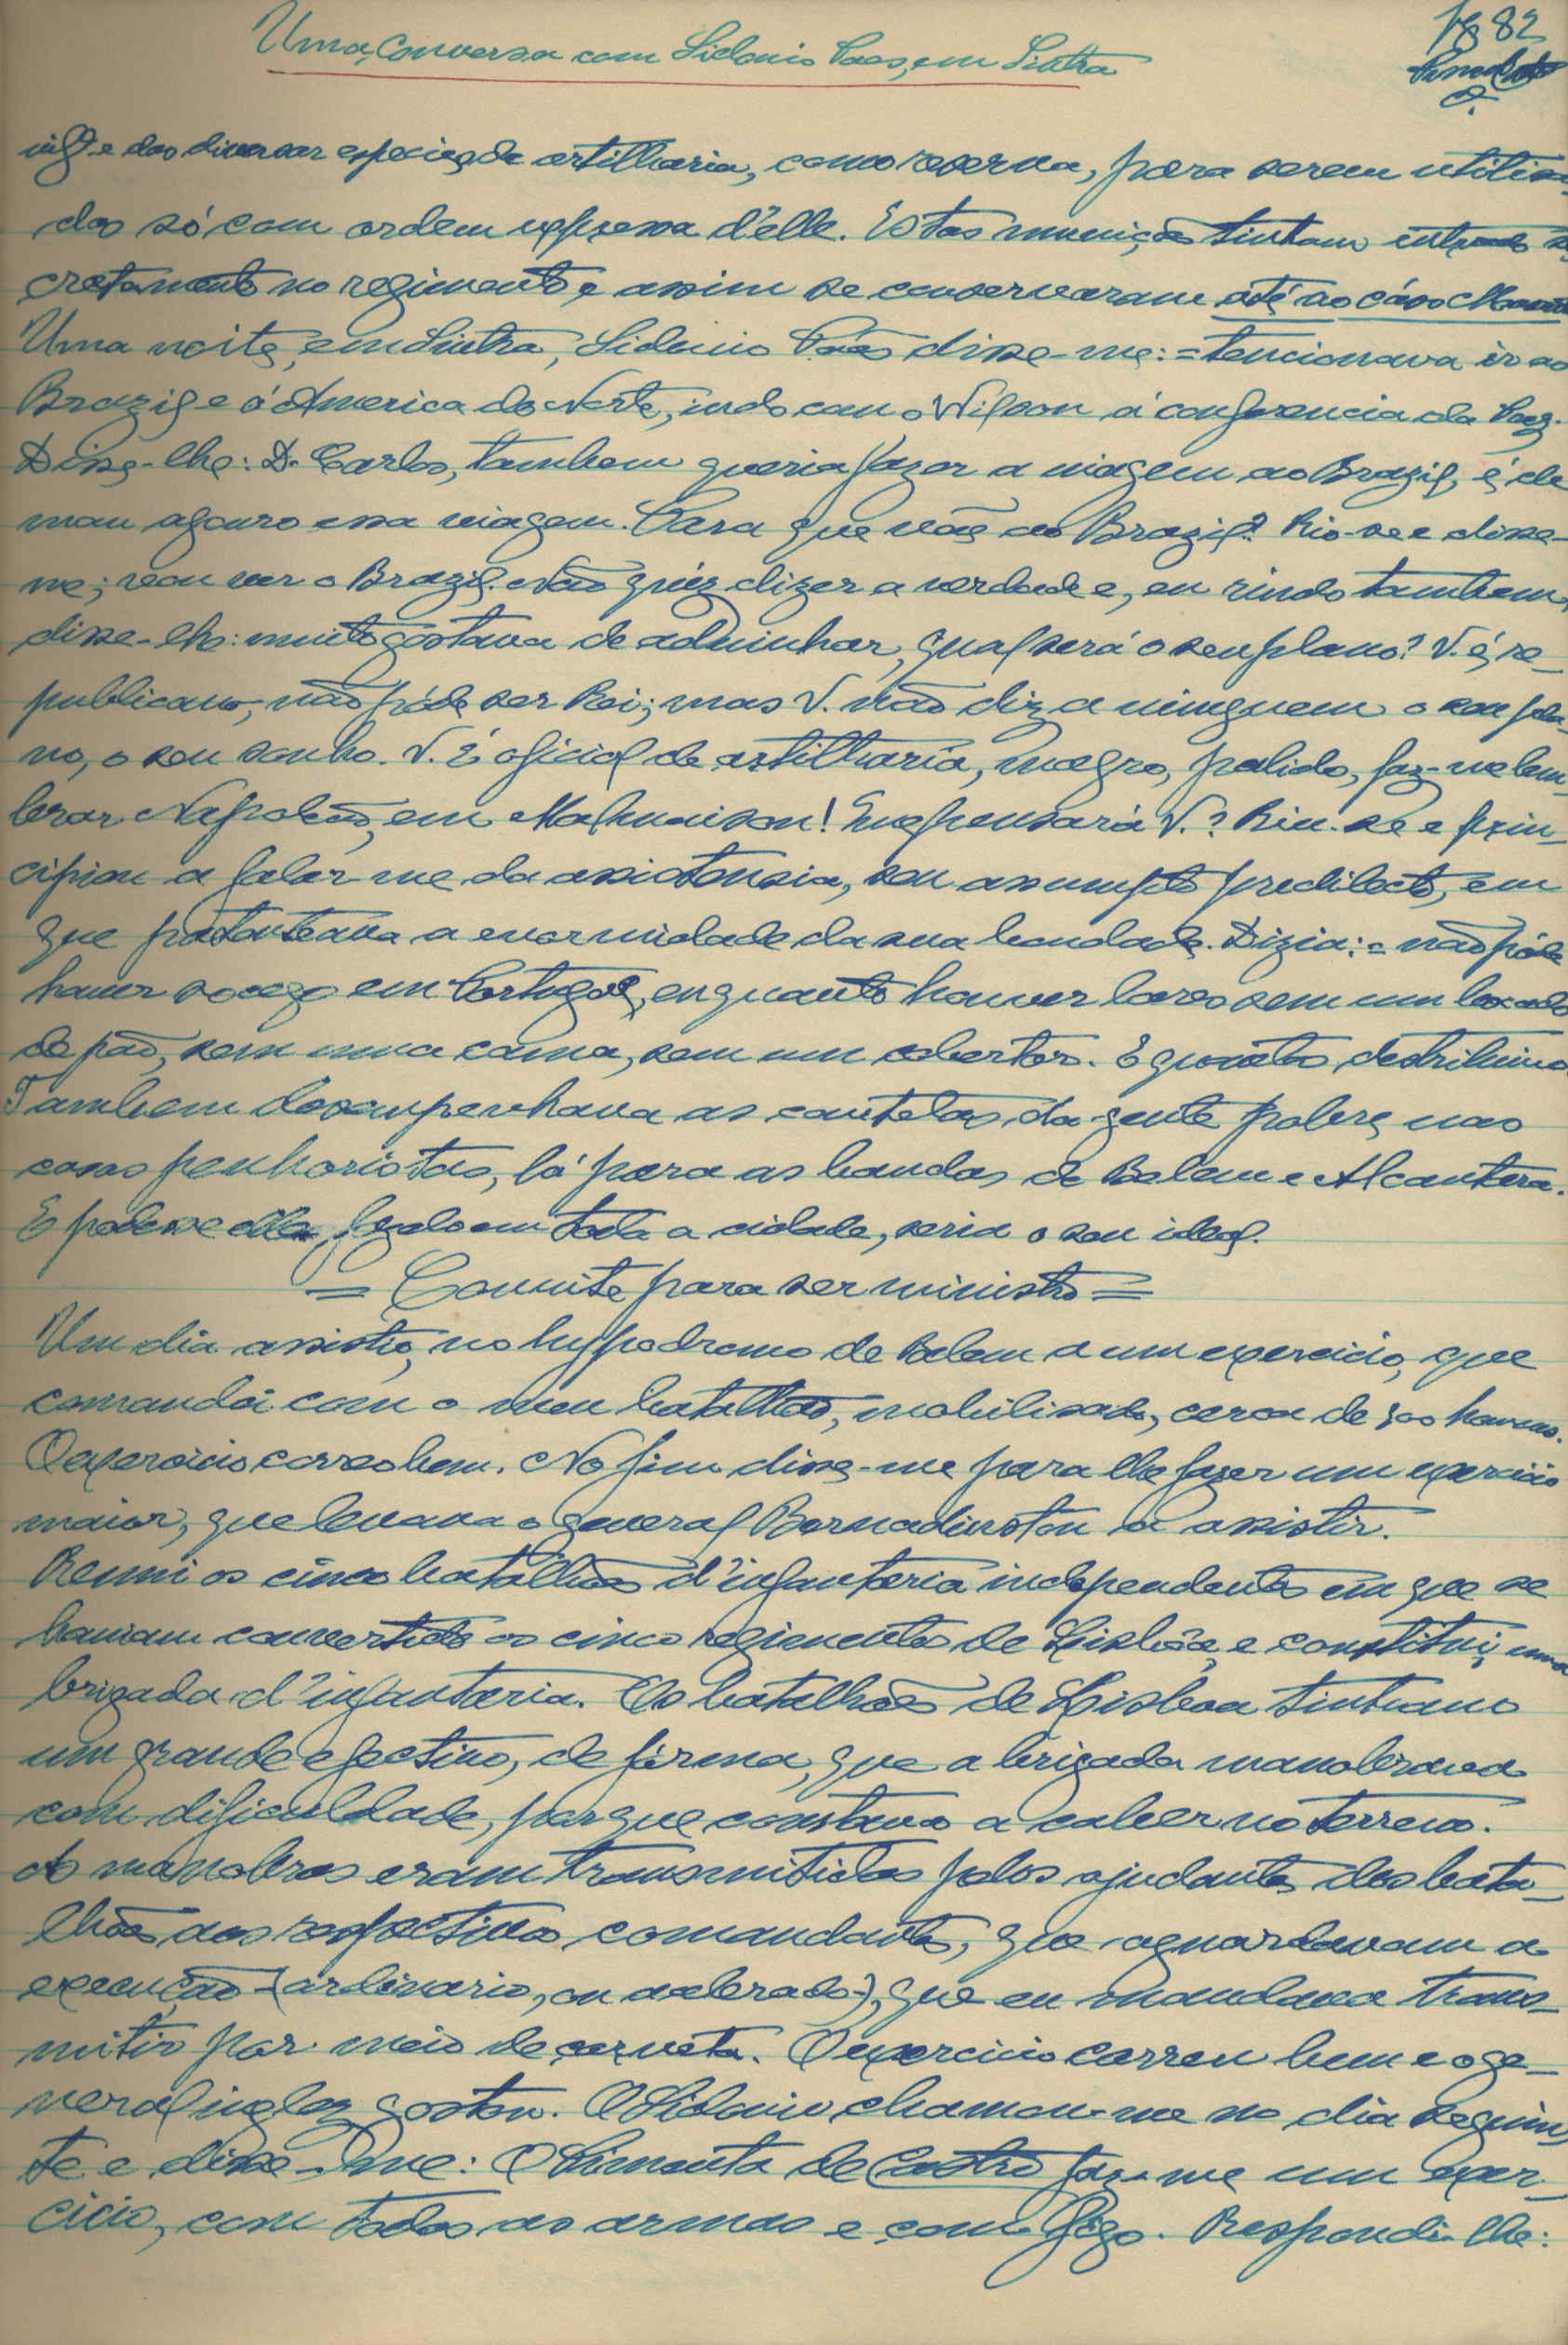 Uma Conversa com Sidonio Paes, em Sintra
Pg 82
inf. e das diversas especies de artilharia, como reserva, para serem utilisa-
das só com ordem expressa d'élle. Estas munições tinham entrado se-
cretamente no regimento e assim se conservaram até ao cáso
Uma noite, em Sintra, Sidonio Páes disse-me: = tencionava ir ao
Brazil e á America do Norte, indo com o Wilson á conferencia da Paz.
Disse-lhe: D. Carlos, tambem queria fazer a viagem ao Brazil, é de
mau agouro essa viagem. Para que vae ao Brazil? Rio-se e disse-
me; vou ver o Brazil. Não quiz dizer a verdade e, eu rindo tambem,
disse-lhe: muito gostava de adivinhar, qual será o seu plano? V. é re-
publicano, não póde ser Rei; mas V. não diz a ninguem o seu pla-
no, o seu sonho. V. é oficial de artilharia, magro, palido, faz-me lem-
brar Napoleão, em Malmaison! Que pensará V.? Riu-se e prin-
cipiou a falar-me da assistencia, seu assumpto predilecto, em
que patenteava a enormidade da sua bondade. Dizia: = não póde
haver socego em Portugal, enquanto houver lares sem um bocado
de pão, sem uma cama, sem um cobertor. E quanto destribuiu.
Tambem desempenhava as cautelas da gente pobre, nas
casas penhoristas, lá para as bandas de Belem e Alcantara.
E podesse elle, fazelo em toda a cidade, seria o seu ideal.
= Convite para ser ministro =
Um dia assistio, no hyppodromo de Belem a um exercicio, que
comandei com o meu batalhão, mobilisado, cerca de 500 homens.
O exercicio correo bem. No fim disse-me para lhe fazer um exercicio
maior, que levava o general Bernadinston a assistir.
Reuni os cinco batalhões d'infantaria independentes em que se
haviam convertido os cinco regimentos de Lisbôa, e constitui, uma
brigada d'infantaria. Os batalhões de Lisbôa tinham
um grande efectivo, de fórma, que a brigada manobrava
com dificuldade, porque constava a caber no terreno.
As manobras eram transmitidas pelos ajudantes dos bata-
lhões aos respectivos comandantes, que aguardavam a
execução - (ordinario, ou acelerado-), que eu mandava trans-
mitir por meio de corneta. O exercicio correu bem e o ge-
neral inglez gostou. O Sidonio chamou-me no dia seguin-
te e disse-me: O Pimenta de Castro faz-me um exer-
cicio, com todas as armas e com fogo. Respondi-lhe: